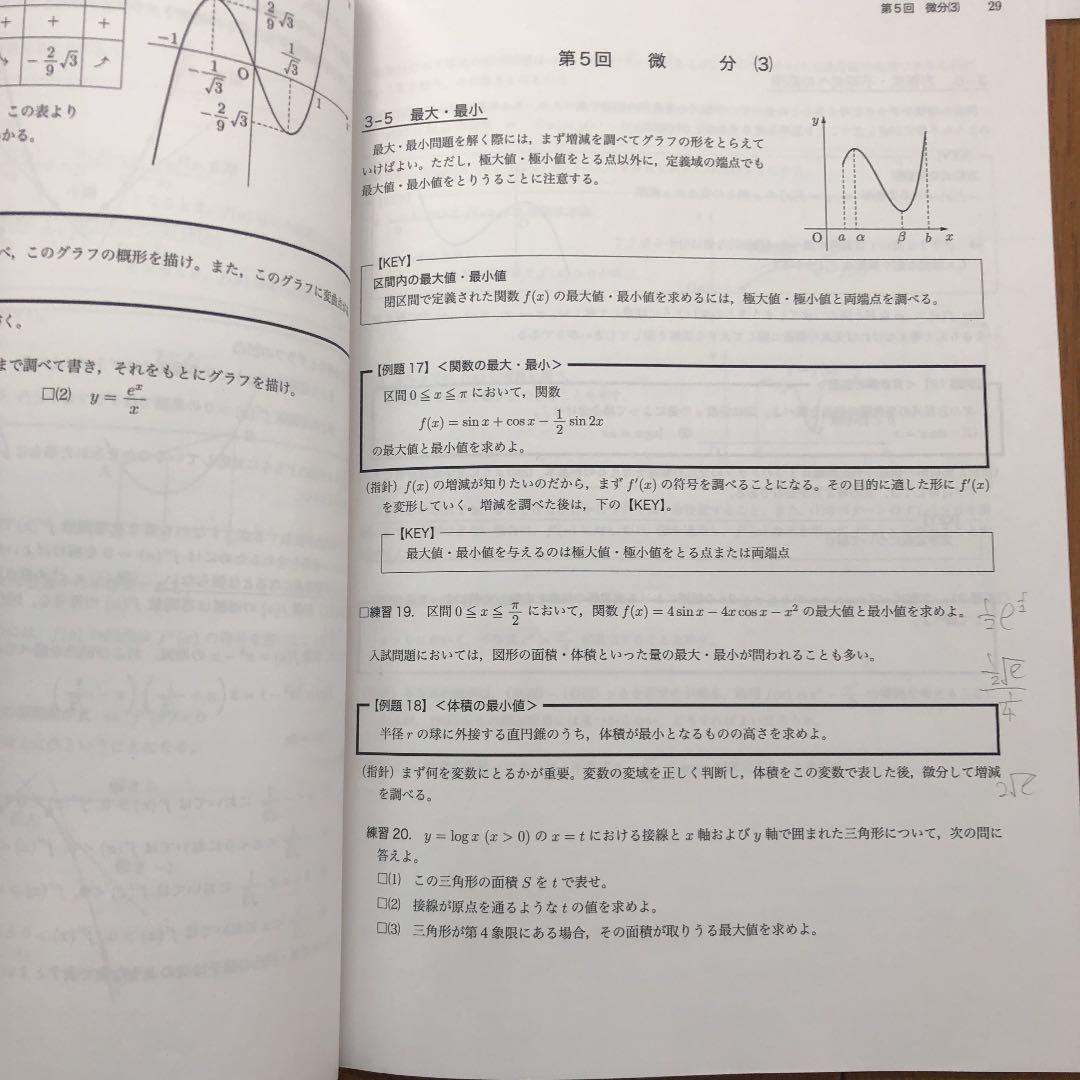 + + +
- 2/9 √3
この表より
かる。
-1
2/9 √3
1/√3
O
- 1/√3
1
- 2/9 √3
べ，このグラフの概形を描け。また，このグラフに変曲点が
く。
まで調べて書き，それをもとにグラフを描け。
□(2) y = e^x/x
第5回 微分(3) 29
第5回 微 分 (3)
3-5 最大・最小
最大・最小問題を解く際には，まず増減を調べてグラフの形をとらえて
いけばよい。ただし，極大値・極小値をとる点以外に，定義域の端点でも
最大値・最小値をとりうることに注意する。
y
O a α β b x
【KEY】
区間内の最大値・最小値
閉区間で定義された関数 f(x) の最大値・最小値を求めるには，極大値・極小値と両端点を調べる。
【例題17】＜関数の最大・最小＞
区間 0 ≦ x ≦ π において，関数
f(x) = sin x + cos x - 1/2 sin 2x
の最大値と最小値を求めよ。
(指針) f(x) の増減が知りたいのだから，まず f′(x) の符号を調べることになる。その目的に適した形に f′(x)
を変形していく。増減を調べた後は，下の【KEY】。
【KEY】
最大値・最小値を与えるのは極大値・極小値をとる点または両端点
□練習19. 区間 0 ≦ x ≦ π/2 において，関数 f(x) = 4 sin x - 4x cos x - x² の最大値と最小値を求めよ。
入試問題においては，図形の面積・体積といった量の最大・最小が問われることも多い。
【例題18】＜体積の最小値＞
半径 r の球に外接する直円錐のうち，体積が最小となるものの高さを求めよ。
(指針) まず何を変数にとるかが重要。変数の変域を正しく判断し，体積をこの変数で表した後，微分して増減
を調べる。
2√e
練習20. y = log x (x > 0) の x = t における接線と x 軸および y 軸で囲まれた三角形について，次の問に
答えよ。
□(1) この三角形の面積 S を t で表せ。
□(2) 接線が原点を通るような t の値を求めよ。
□(3) 三角形が第4象限にある場合，その面積が取りうる最大値を求めよ。